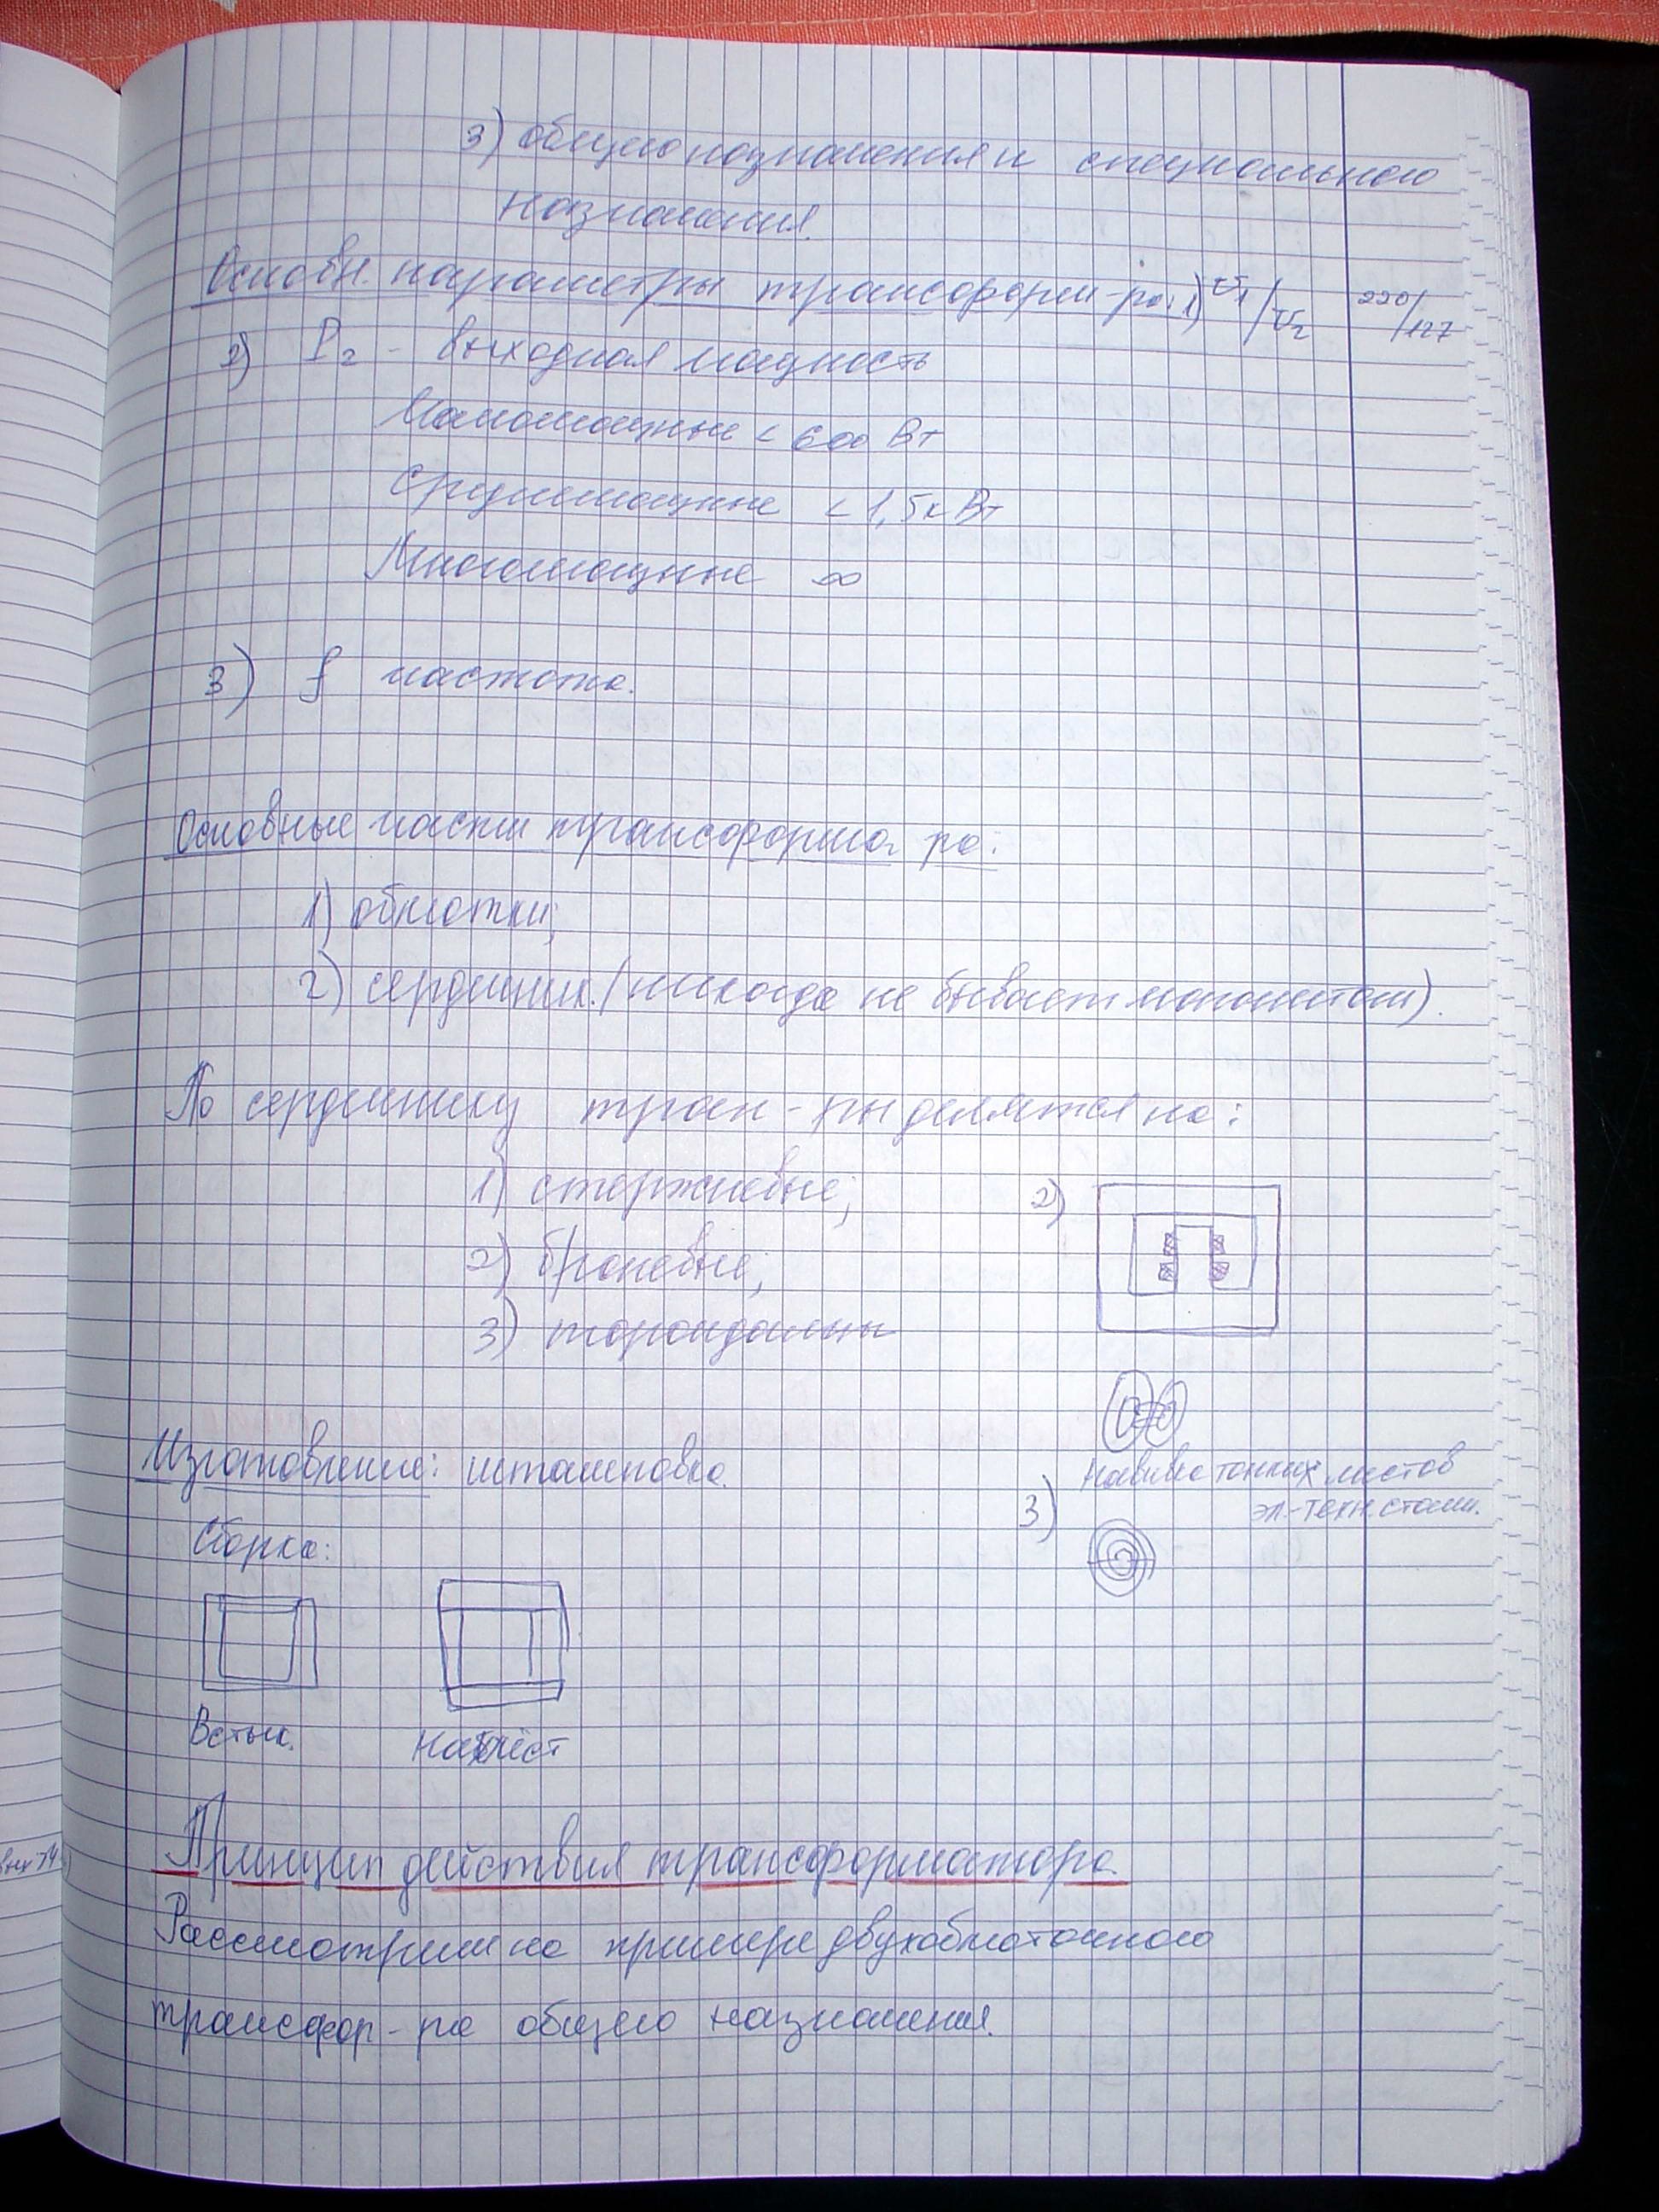 3) общего назначения и специального
назначения.
Основн. параметры трансформ-ра: 1) U₁/U₂ 220/127
2) P₂ - выходная мощность
Маломощные < 600 Вт
Среднемощные < 1,5 кВт
Многомощные ∞
3) f частота.
Основные части трансформа-ра:
1) обмотки;
2) сердечник. (никогда не бывает монолитом).
По сердечнику тран-ры делятся на:
1) стержневые;
2) броневые;
3) тороидальны
2)
Изготовление: штамповка.
Навивка тонких листов
эл.-техн. стали.
3)
Сборка:
Встык.
Нахлёст
Принцип действия трансформатора.
Рассмотрим на примере двухобмоточного
трансфор-ра общего назначения.